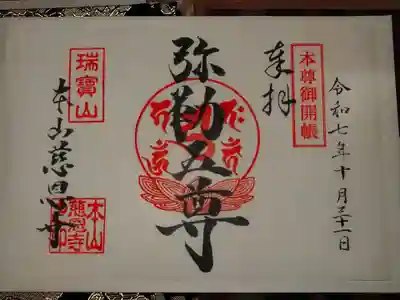 令和七年十月三十一日
本尊御開帳
奉拝
弥勒五尊
瑞寳山
本山慈恩寺
本山慈恩寺印